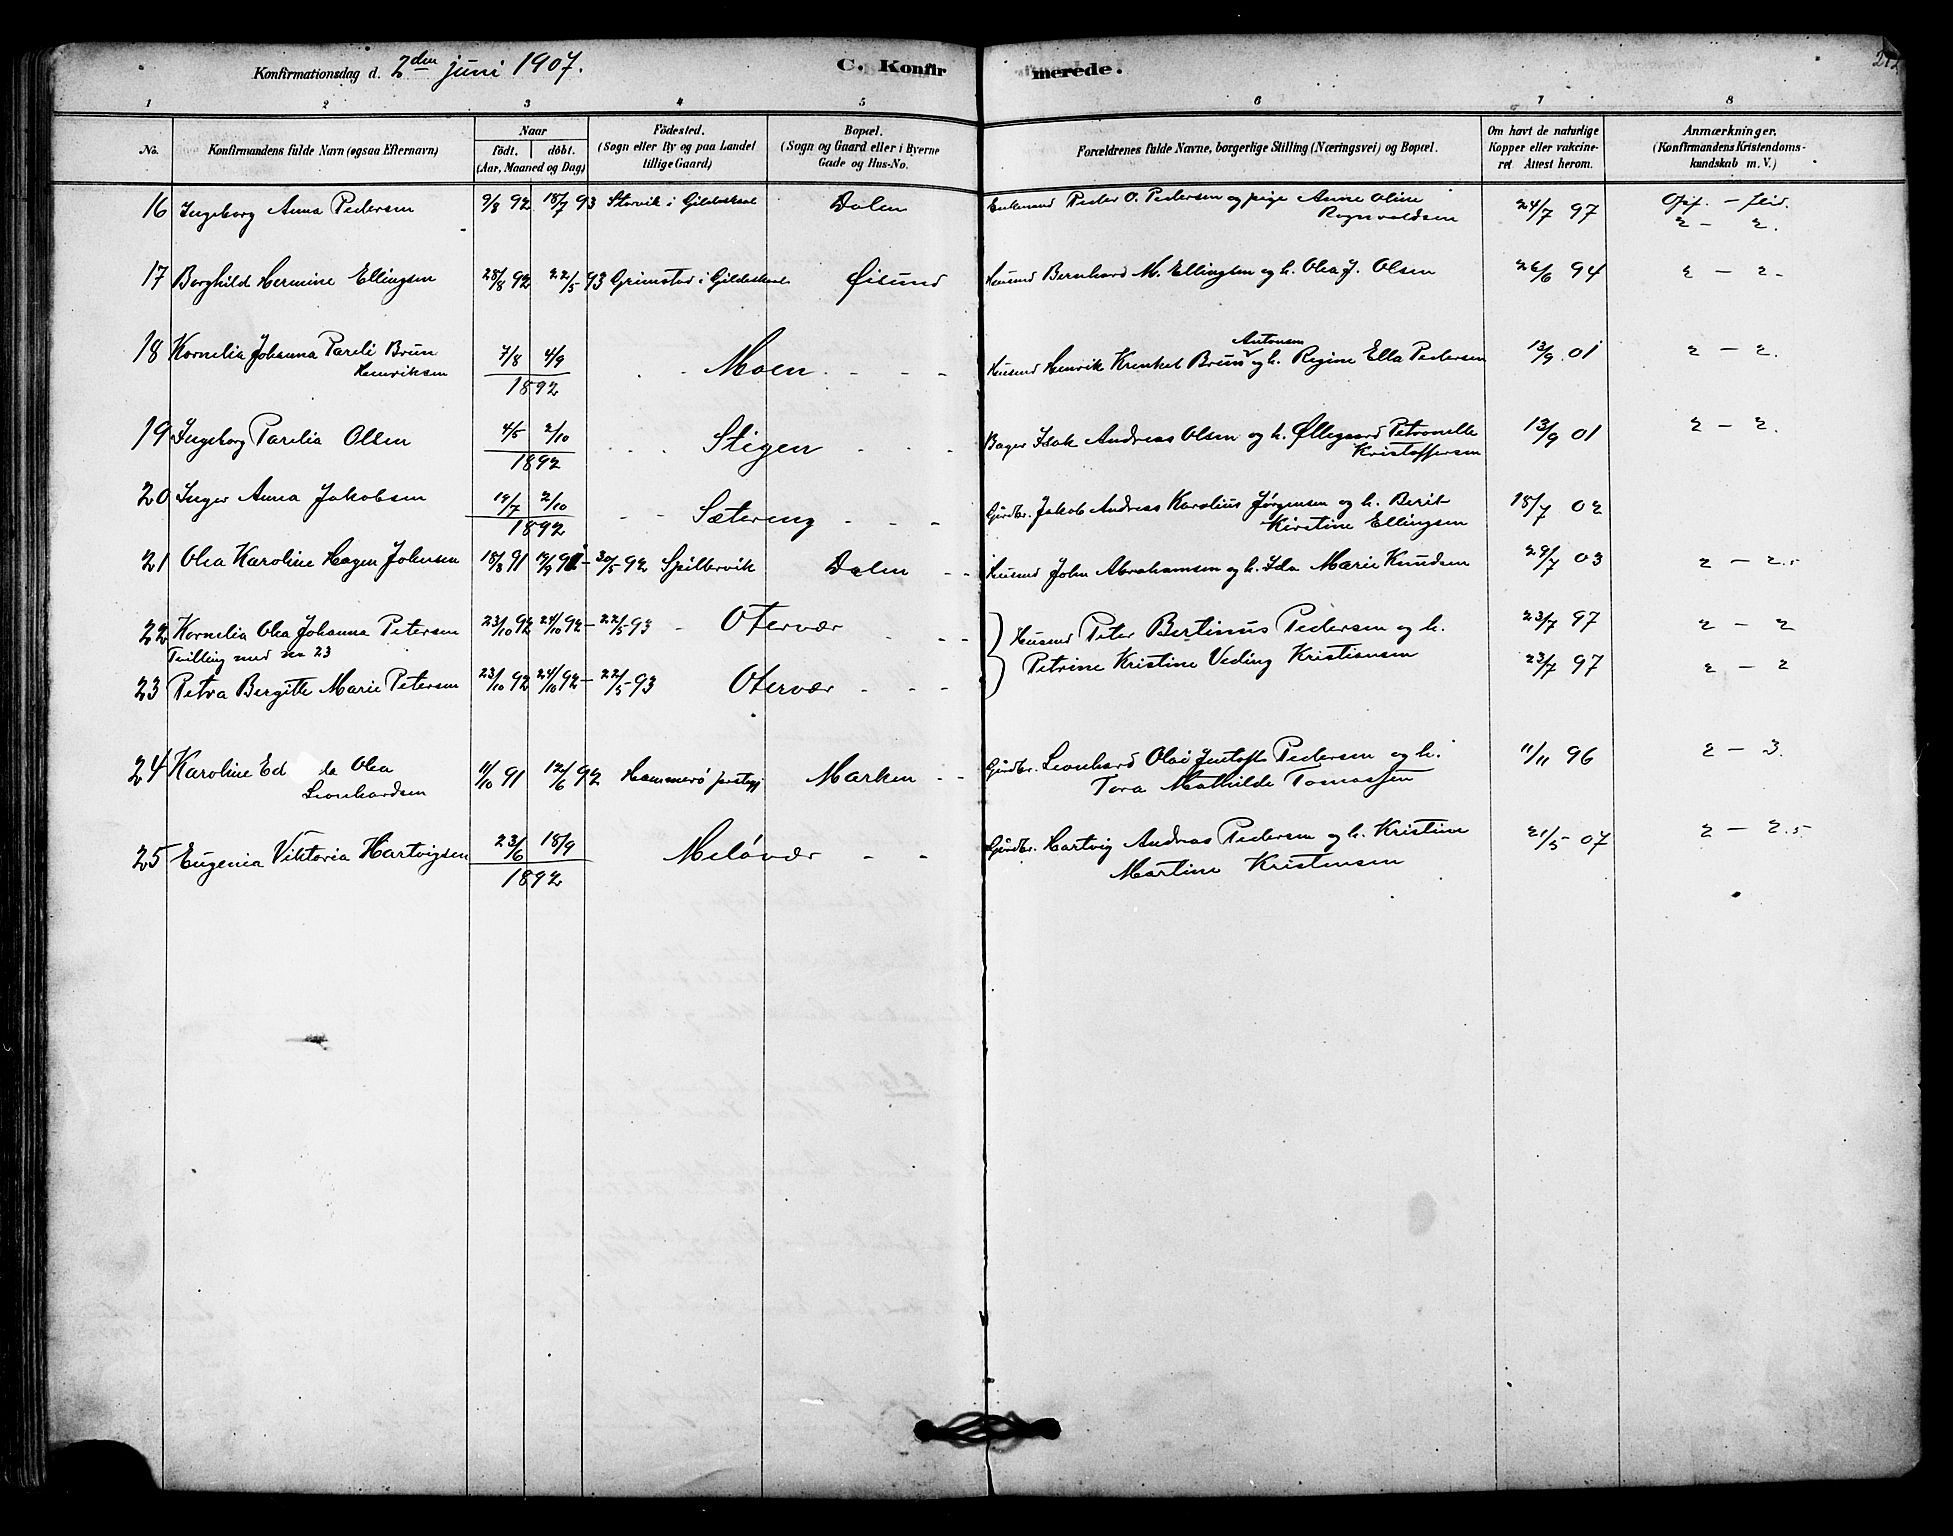 Konfirmationsdag d. 2den juni 1907.
C. Konfirmerede.
1 2 3 4 5 6 7 8
No.
Konfirmandens fulde Navn (ogsaa Efternavn)
Naar
født. døbt.
(Aar, Maaned og Dag)
Födested.
(Sogn eller By og paa Landet
tillige Gaard)
Bopæl.
(Sogn og Gaard eller i Byerne
Gade og Hus-No.
Forældrenes fulde Navne, borgerlige Stilling (Næringsvei) og Bopæl.
Om havt de naturlige
Kopper eller vakcine-
ret Attest herom.
Anmærkninger.
(Konfirmandens Kristendoms-
kundskab m. V.)
16 Ingeborg Anna Pedersen 9/8 92 18/7 93 Storvik i Gildeskaal Dalen Enkemand Peder O. Pedersen og pige Anne Oline
Rognvaldsen 24/7 97 Opf. - flid.
2 - 2.
17 Borghild Hermine Ellingsen 28/8 92 22/5 93 Grimstad i Gildeskaal Øisund Husmd Bernhard M. Ellingsen og h. Olea J. Olsen 26/6 94 2 - 2.
18 Kornelia Johanna Pareli Brun
Henriksen 7/8 4/9
1892 Moen Husmd Henrik Krenkel Brun Antonsen og h. Regine Ella Pedersen 13/9 01 2 - 2.
19 Ingeborg Parelia Olsen 4/5 2/10
1892 Stigen Bager Isak Andreas Olsen og h. Øllegaard Petronelle
Kristoffersen 13/9 01 2 - 2.
20 Inger Anna Jakobsen 19/7 2/10
1892 Sætereng Gårdbr. Jakob Andreas Karolius Jørgensen og h. Berit
Kirstine Ellingsen 18/7 02
21 Olea Karoline Hagen Johnsen 18/8 91 - 30/5 92 Spilbervik Dalen Husmd John Abrahamsen og h. Ida Marie Knudsen 29/7 03 2 - 2.5
22 Kornelia Olea Johanna Petersen 23/10 92 24/10 92 - 22/5 93 Otervær Husmd Peter Bertinus Pedersen og h. 23/7 97 2 - 2
Tvilling med no 23
23 Petra Bergitte Marie Petersen 23/10 92 24/10 92 - 22/5 93 Otervær Petrine Kristine Veding Kristiansen 23/7 97 2 - 2
24 Karoline Ed da Olea
Leonhardsen 11/10 91 12/6 92 Hammerö prestegj Marken Gårdbr. Leonhard Olai Jentoft Pedersen og h.
Tora Mathilde Tomassen 11/11 96 2 - 3.
25 Eugenia Viktoria Hartvigsen 23/6 18/9
1892 Meløvær Gårdbr. Hartvig Andreas Pedersen og h. Kristine
Martine Kristensen 21/5 07 2 - 2.5.